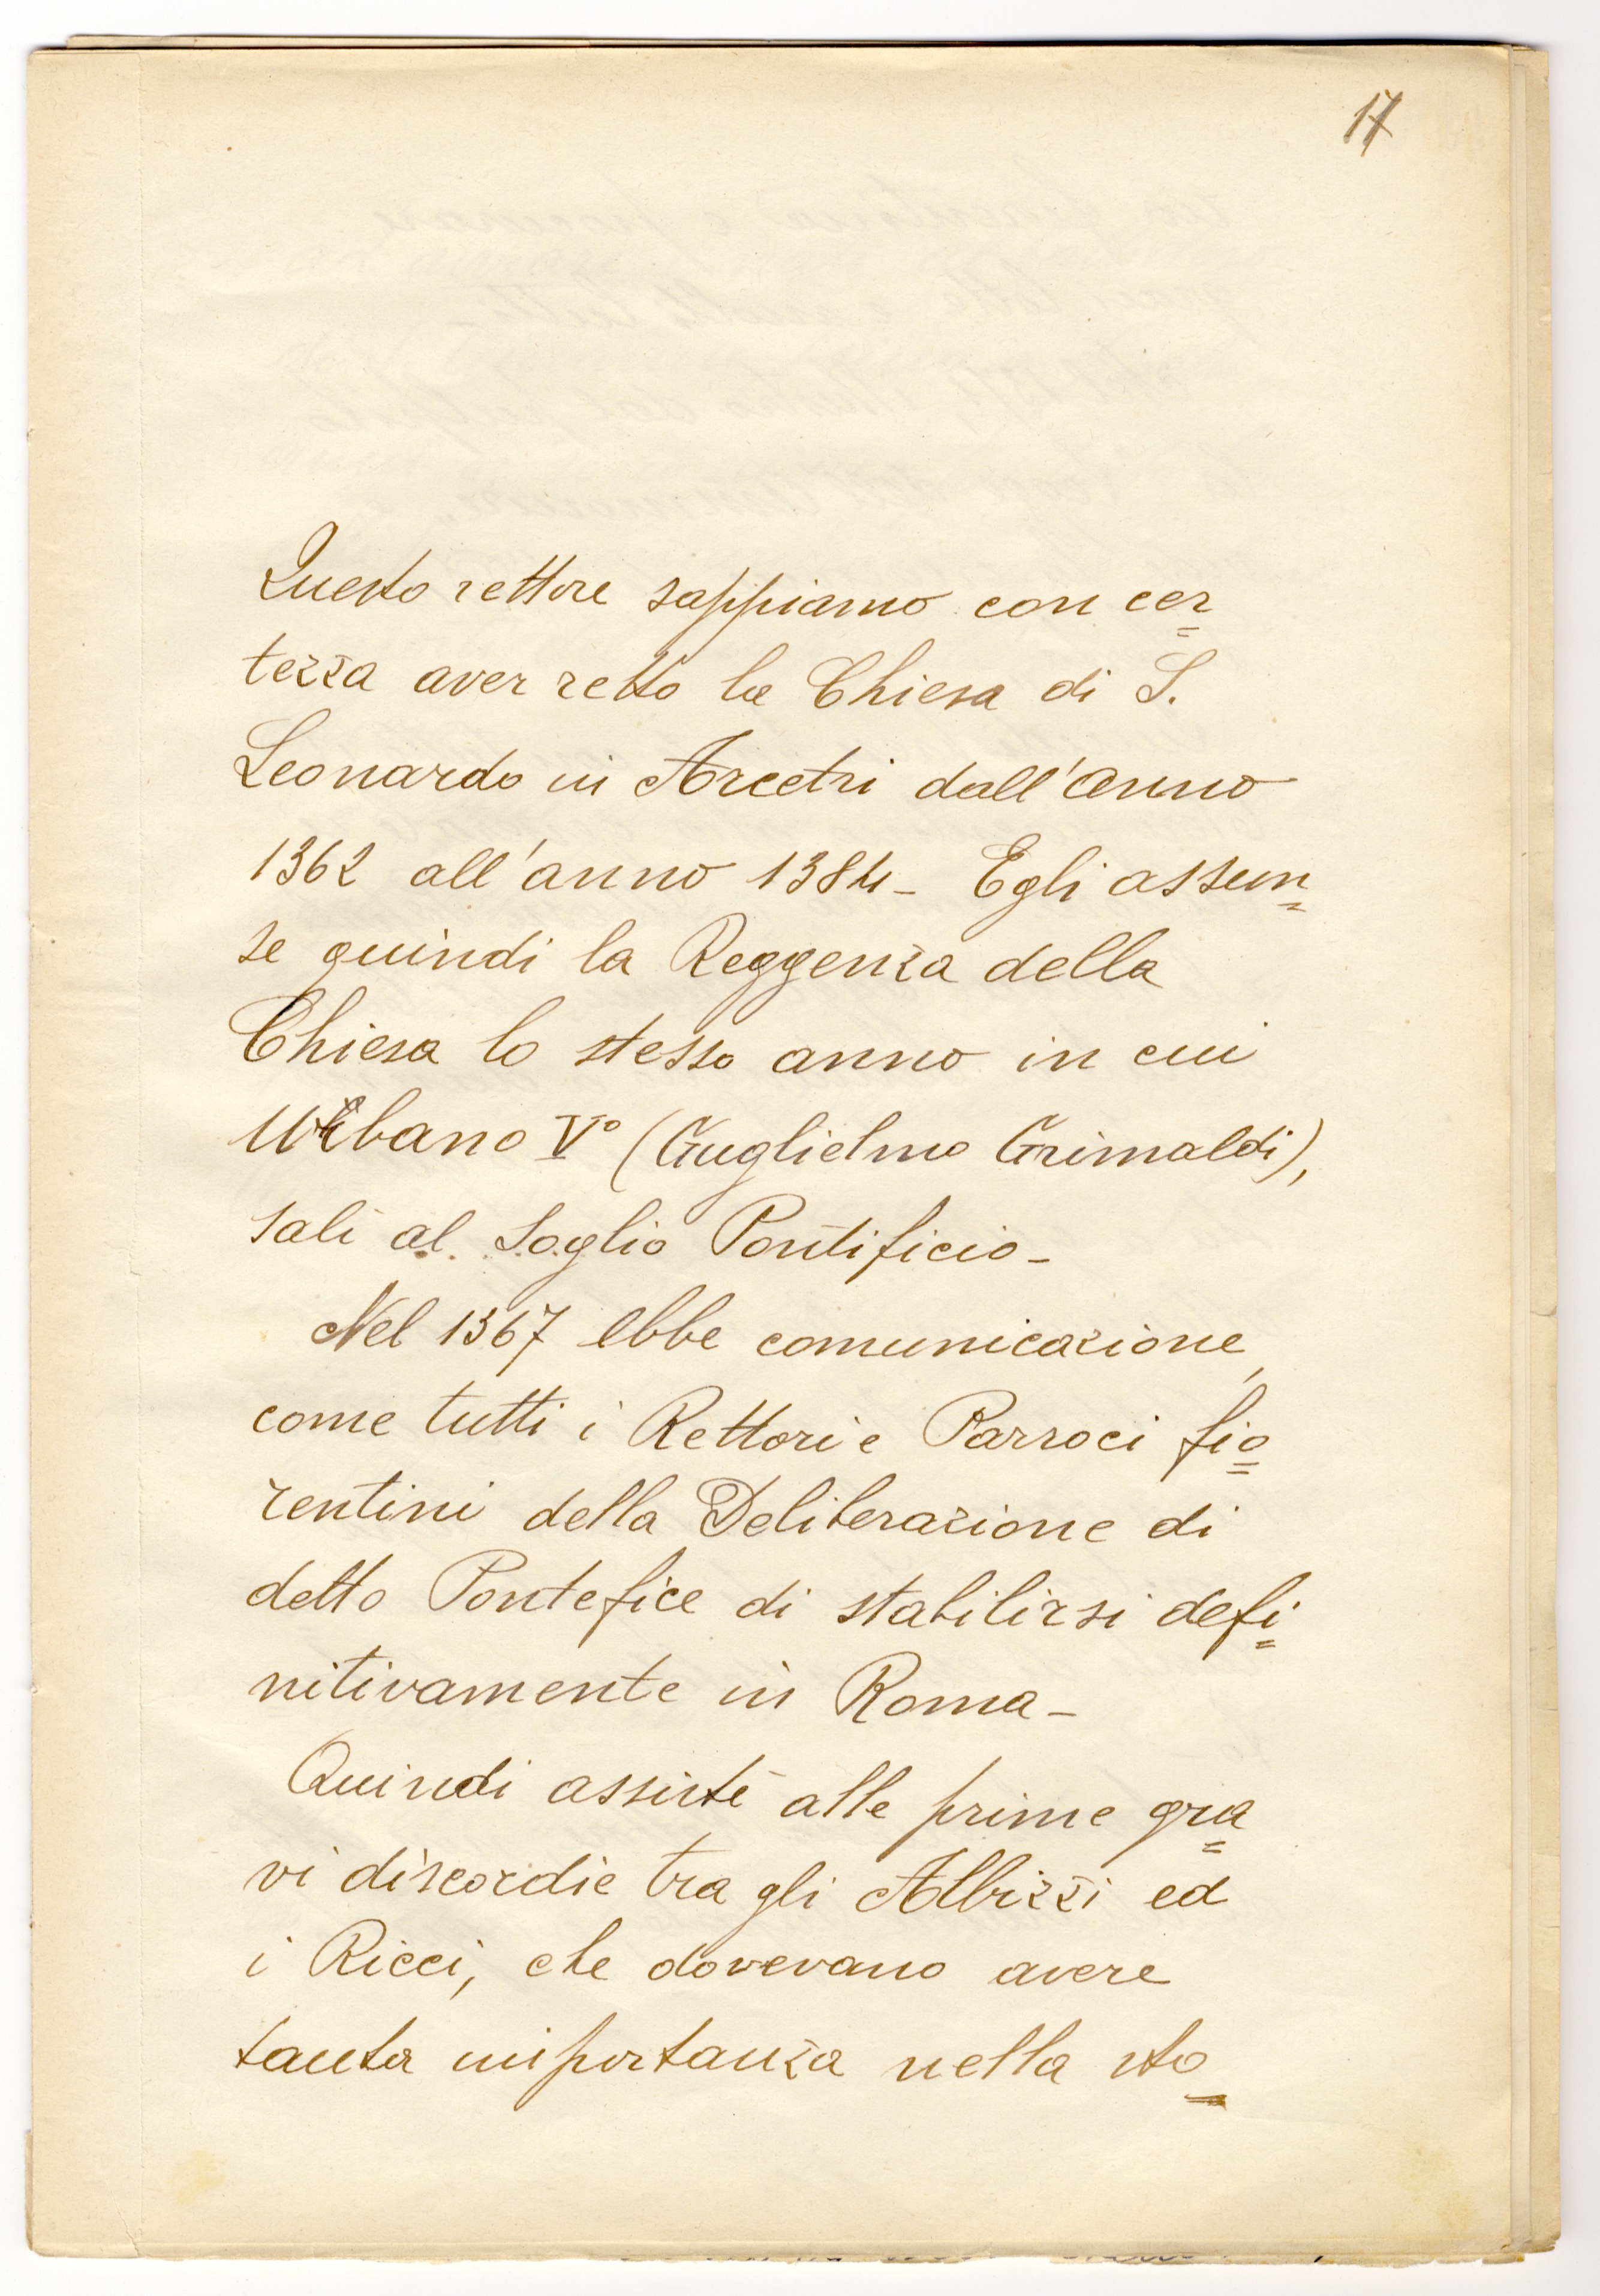 17
Questo rettore sappiamo con cer=
tezza aver retto la Chiesa di S.
Leonardo in Arcetri dall'anno
1362 all'anno 1384- Egli assun=
se quindi la Reggenza della
Chiesa lo stesso anno in cui
Urbano V° (Guglielmo Grimaldi),
salì al Soglio Pontificio-
Nel 1367 ebbe comunicazione,
come tutti i Rettori e Parroci fio=
rentini della Deliberazione di
detto Pontefice di stabilirsi defi=
nitivamente in Roma-
Quindi assistè alle prime gra=
vi discordie tra gli Albizzi ed
i Ricci, che dovevano avere
tanta importanza nella sto=